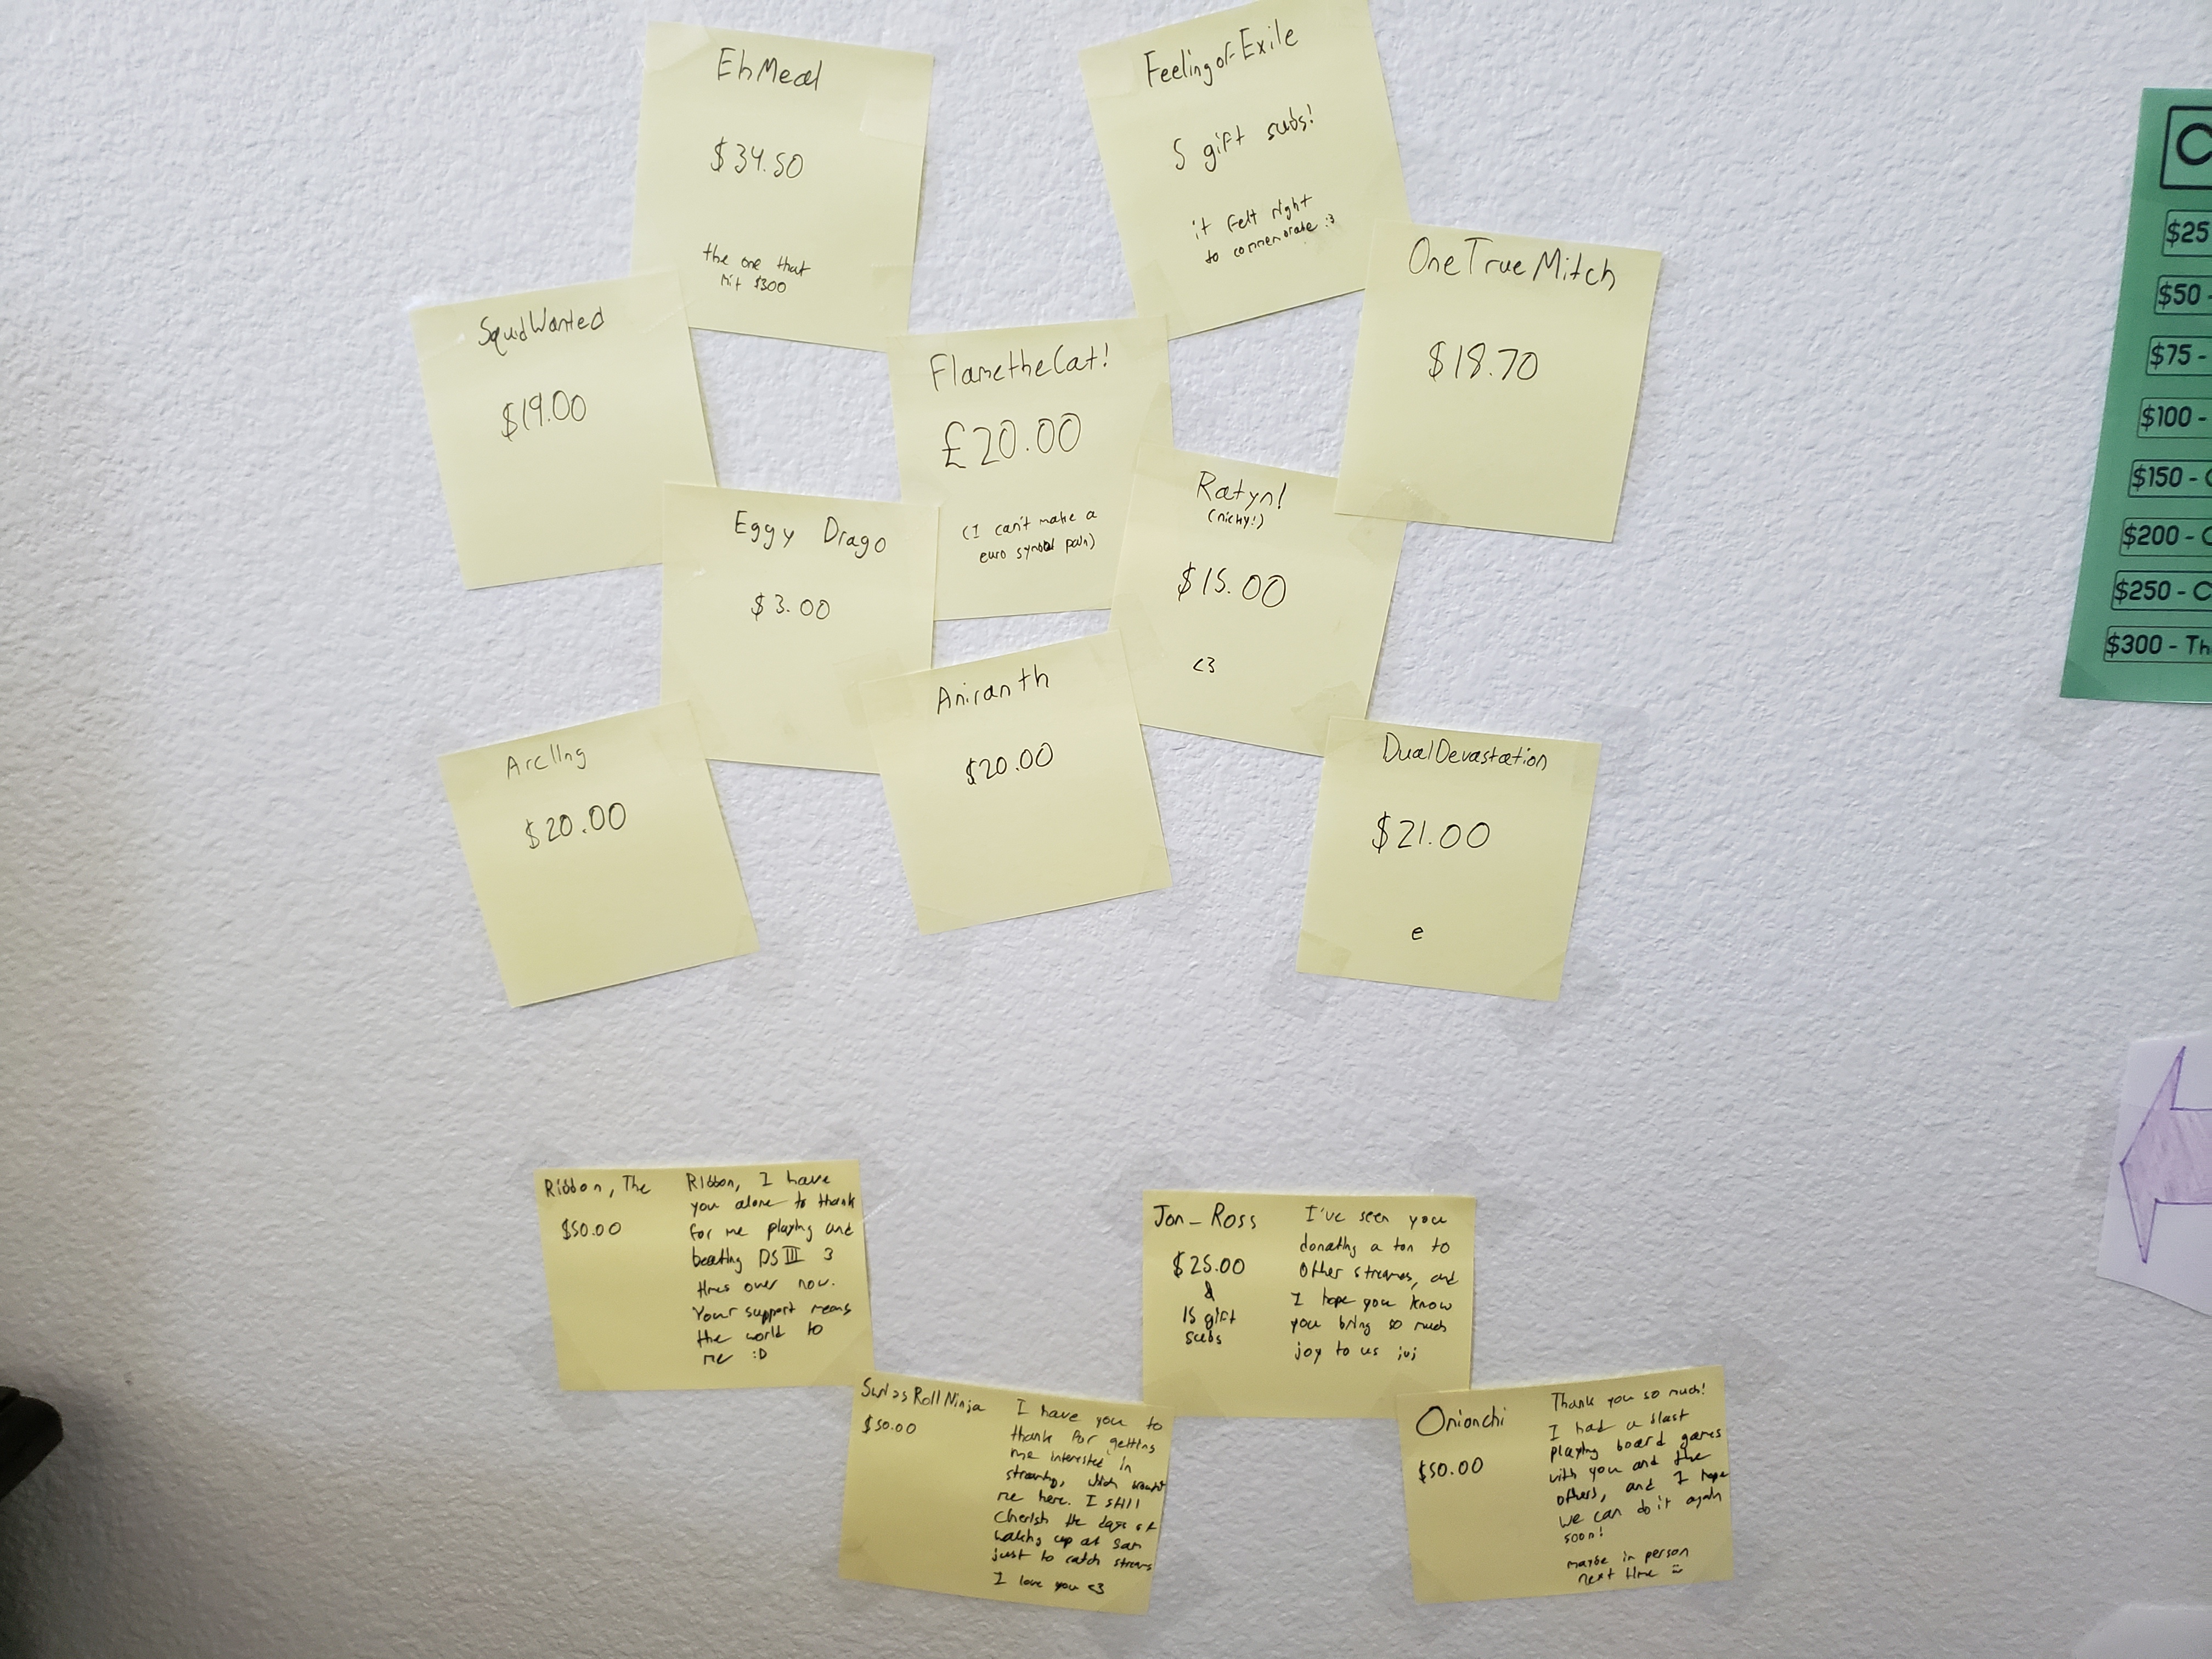 EhMeal
$34.50
the one that
hit $300
FeelingofExile
5 gift subs!
it felt right
to commemorate :3
OneTrueMitch
$18.70
SquidWanted
$19.00
FlametheCat!
£20.00
(I can't make a
euro symbol pain)
Ratyn!
(nicky!)
$15.00
<3
Eggy Drago
$3.00
Aniranth
$20.00
Arcllng
$20.00
DualDevastation
$21.00
e
Ribbon, The
$50.00
Ribbon, I have
you alone to thank
for me playing and
beating DS III 3
times over now.
Your support means
the world to
me :D
Jon_Ross
$25.00
&
15 gift
subs
I've seen you
donating a ton to
other streams, and
I hope you know
you bring so much
joy to us
SwissRollNinja
$50.00
I have you to
thank for getting
me interested in
streaming, which brought
me here. I still
cherish the days of
waking up at 5am
just to catch streams
I love you <3
Onionchi
$50.00
Thank you so much!
I had a blast
playing board games
with you and the
others, and I hope
we can do it again
soon!
maybe in person
next time
C
$25
$50 -
$75 -
$100 -
$150 - C
$200 - C
$250 - C
$300 - Th